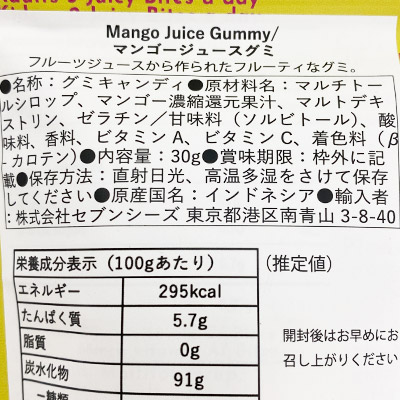 Mango Juice Gummy/
マンゴージュースグミ
フルーツジュースから作られたフルーティなグミ。
●名称：グミキャンディ●原材料名：マルチトー
ルシロップ、マンゴー濃縮還元果汁、マルトデキ
ストリン、ゼラチン／甘味料（ソルビトール）、酸
味料、香料、ビタミンA、ビタミンC、着色料（β
-カロテン）●内容量：30g●賞味期限：枠外に記
載●保存方法：直射日光、高温多湿をさけて保存
してください●原産国名：インドネシア●輸入者
：株式会社セブンシーズ 東京都港区南青山 3-8-40
栄養成分表示（100gあたり）
（推定値）
エネルギー 295kcal
たんぱく質 5.7g
脂質 0g
炭水化物 91g
開封後はお早めにお
召し上がりください